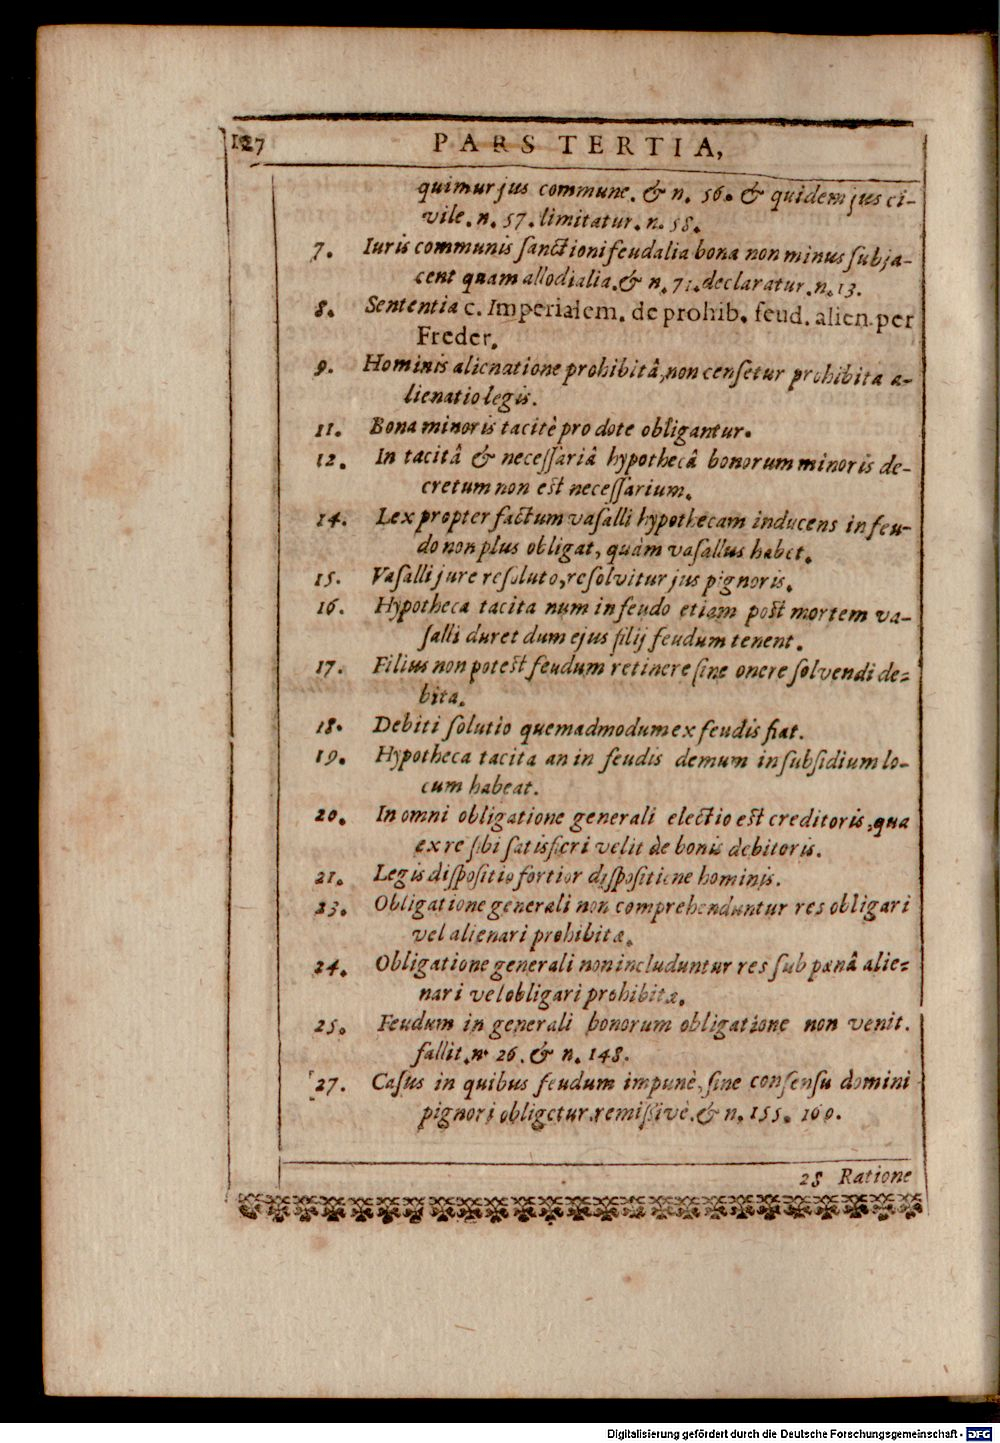 127 PARS TERTIA,
quimur jus commune. & n. 56. & quidem jus ci-
vile. n. 57. limitatur. n. 58.
7. Iuris communis sanctioni feudalia bona non minus subja-
cent quam allodialia. & n. 71. declaratur. n. 13.
8. Sententia c. Imperialem. de prohib. feud. alien. per
Freder.
9. Hominis alienatione prohibitâ, non censetur prohibita a-
lienatio legis.
11. Bona minoris tacitè pro dote obligantur.
12. In tacitâ & necessariâ hypothecâ bonorum minoris de-
cretum non est necessarium.
14. Lex propter factum vasalli hypothecam inducens in feu-
do non plus obligat, quàm vasallus habet.
15. Vasalli jure resoluto, resolvitur jus pignoris.
16. Hypotheca tacita num in feudo etiam post mortem va-
salli duret dum ejus filij feudum tenent.
17. Filius non potest feudum retinere sine onere solvendi de-
bita.
18. Debiti solutio quemadmodum ex feudis fiat.
19. Hypotheca tacita an in feudis demum in subsidium lo-
cum habeat.
20. In omni obligatione generali electio est creditoris, qua
ex re sibi satisfieri velit de bonis debitoris.
21. Legis dispositio fortior dispositione hominis.
23. Obligatione generali non comprehenduntur res obligari
vel alienari prohibitæ.
24. Obligatione generali non includuntur res sub pœnâ alie-
nari vel obligari prohibitæ.
25. Feudum in generali bonorum obligatione non venit.
fallit. n. 26. & n. 148.
27. Casus in quibus feudum impunè, sine consensu domini
pignori obligetur. remissivè. & n. 155. 160.
28 Ratione
Digitalisierung gefördert durch die Deutsche Forschungsgemeinschaft - DFG